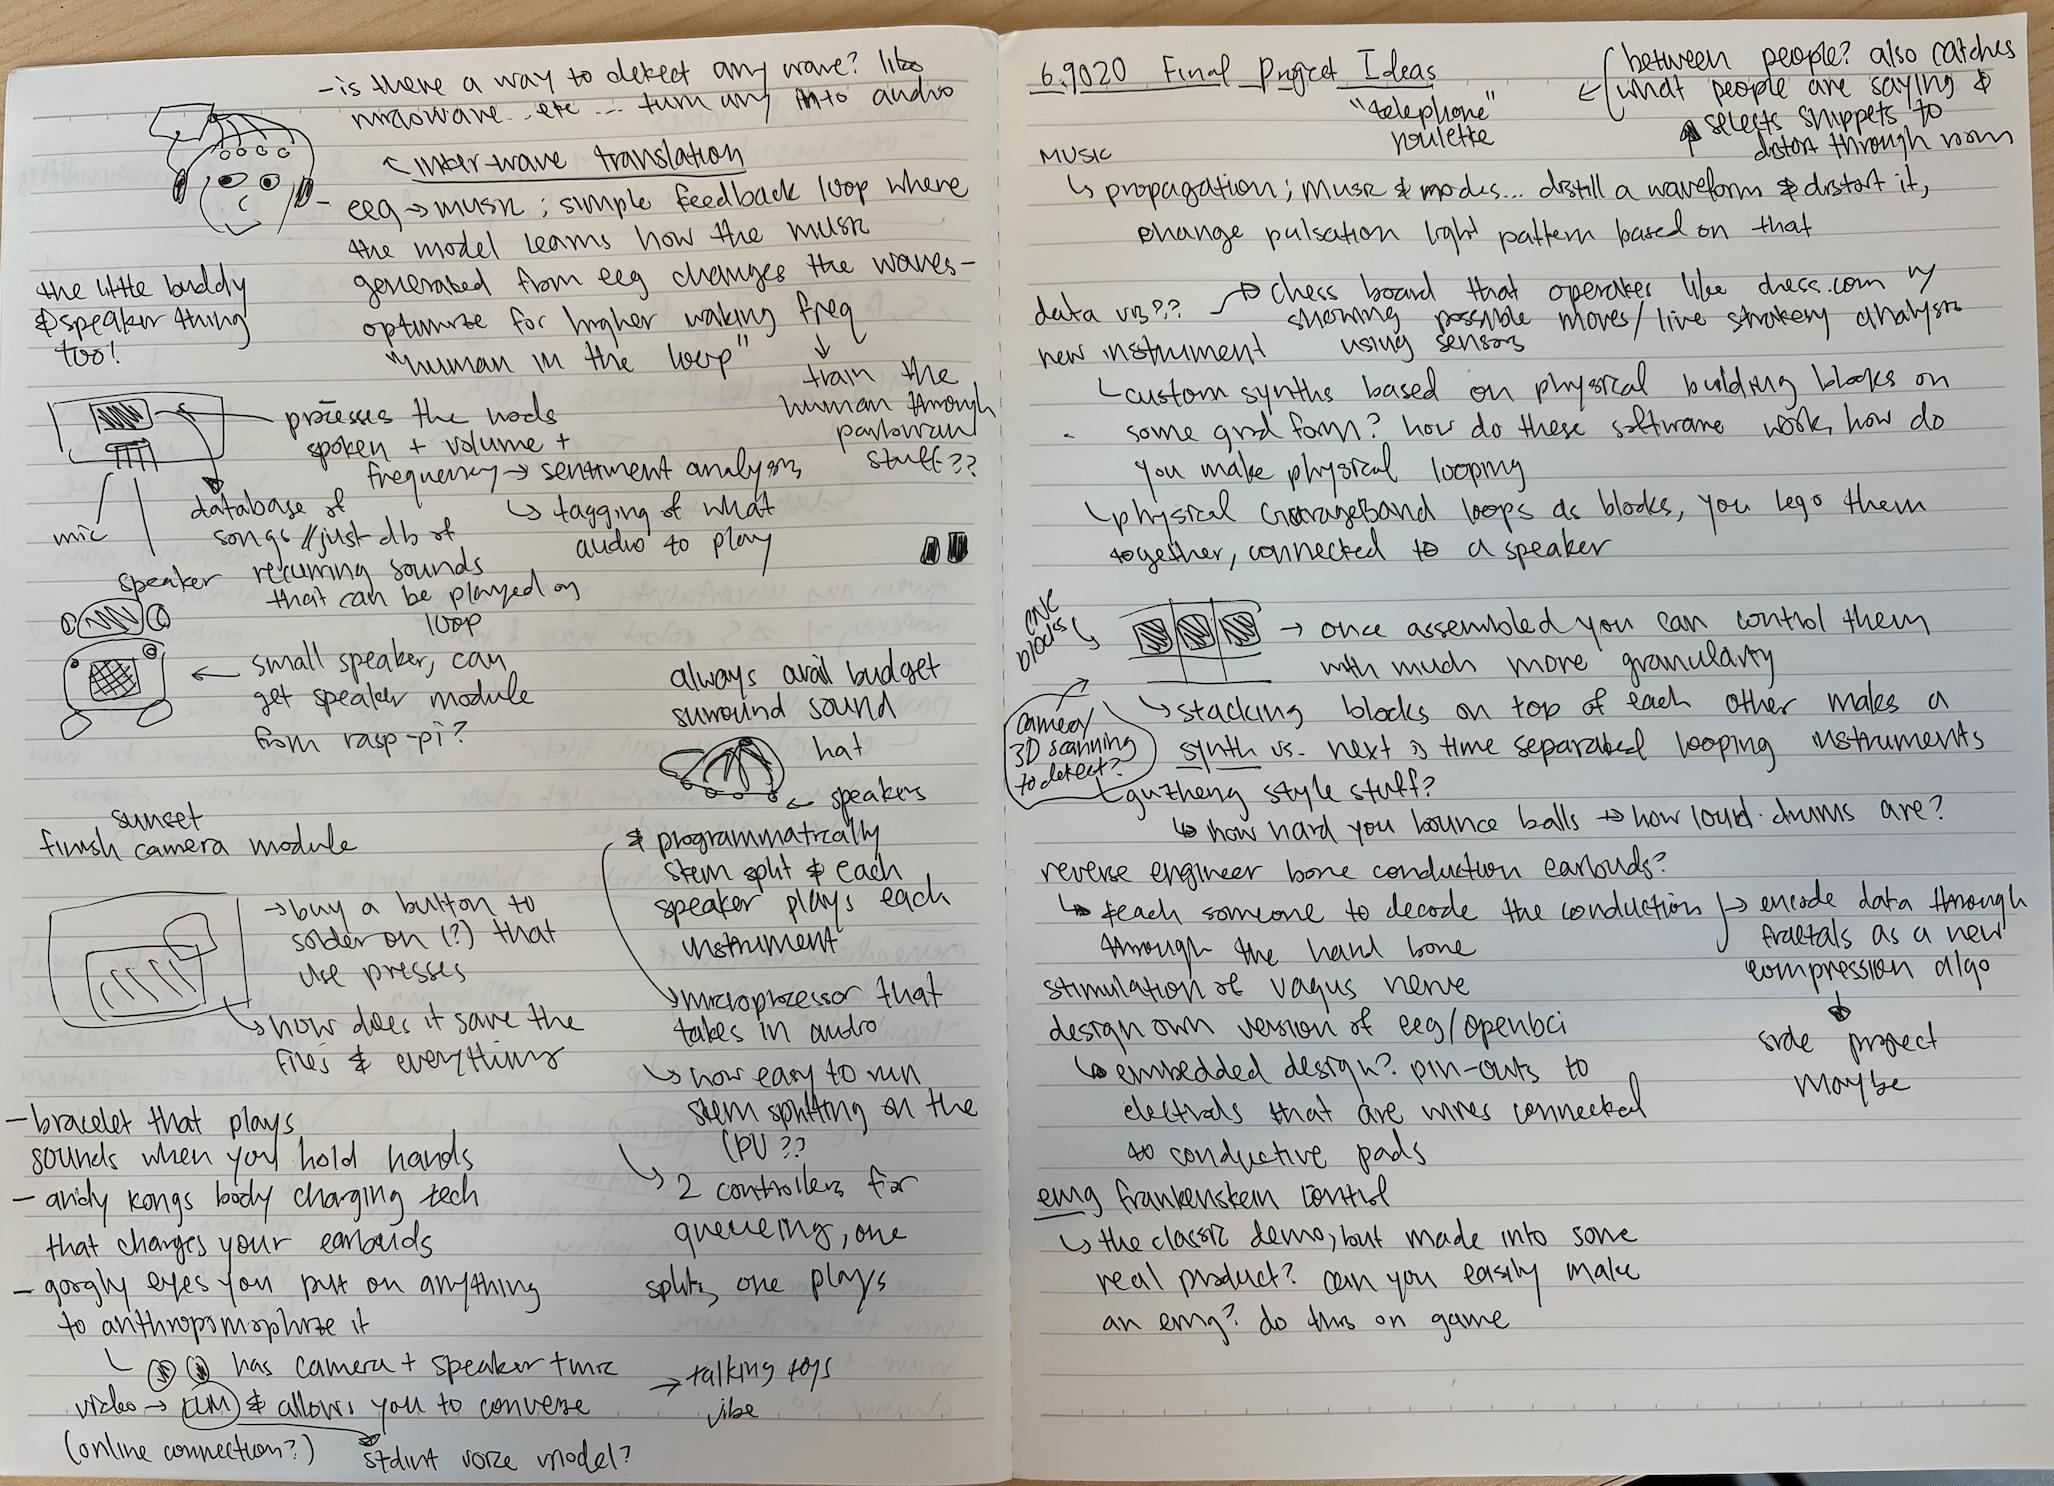 - is there a way to detect any wave? like
microwave... etc ... turn any into audio
inter-wave translation
- eeg → music ; simple feedback loop where
the model learns how the music
generated from eeg changes the waves -
optimize for higher waking freq
"human in the loop"
train the
human through
pavlovian
stuff??
the little buddy
& speaker thing
too!
processes the words
spoken + volume +
frequency → sentiment analysis
↳ tagging of what
audio to play
mic
speaker
database of
songs // just db of
recurring sounds
that can be played on
loop
← small speaker, can
get speaker module
from rasp-pi?
always avail budget
surround sound
hat
← speakers
& programmatically
stem split & each
speaker plays each
instrument
→ microprocessor that
takes in audio
↳ how easy to run
stem splitting on the
CPU ??
↳ 2 controllers for
queueing, one
splits, one plays
sunset
finish camera module
→ buy a button to
solder on (?) that
use presses
↳ how does it save the
files & everything
- bracelet that plays
sounds when you hold hands
- andy kongs body charging tech
that charges your earbuds
- googly eyes you put on anything
to anthropomorphize it
↳ has camera + speaker + mic
video → LLM & allows you to converse
(online connection?)
stdint voice model?
→ talking toys
vibe
6.9020 Final Project Ideas
"telephone"
roulette
between people? also catches
what people are saying &
selects snippets to
distort through room
MUSIC
↳ propagation; music & modes... distill a waveform & distort it,
change pulsation light pattern based on that
data viz??
→ chess board that operates like chess.com w/
showing possible moves/live strokery analysis
using sensors
new instrument
↳ custom synths based on physical building blocks on
some grid form? how do these software work, how do
you make physical looping
↳ physical GarageBand loops as blocks, you lego them
together, connected to a speaker
CNC
blocks
→ once assembled you can control them
with much more granularity
camera/
3D scanning
to detect?
↳ stacking blocks on top of each other makes a
synth vs. next is time separated looping instruments
↳ guzheng style stuff?
↳ how hard you bounce balls → how loud drums are?
reverse engineer bone conduction earbuds?
↳ teach someone to decode the conduction
through the hand bone
→ encode data through
fractals as a new
compression algo
side project
maybe
stimulation of vagus nerve
design own version of eeg/openbci
↳ embedded design? pin-outs to
electrods that are wires connected
to conductive pads
emg frankenstein control
↳ the classic demo, but made into some
real product? can you easily make
an emg? do this on game